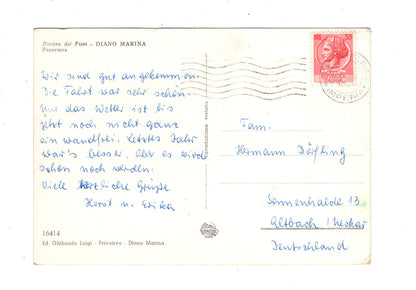 Riviera dei Fiori - DIANO MARINA
Panorama
Wir sind gut angekommen.
Die Fahrt war sehr schön.
Nur das Wetter ist bis
jetzt noch nicht ganz
einwandfrei. Letztes Jahr
war's besser. Aber es wird
schon noch werden.
Viele herzliche Grüße
Horst u. Erika
16414
Ed. Ghibaudo Luigi - Privativa - Diano Marina
Riproduzione vietata
Fam.
Hermann Dörfling
Sonnenhalde 13
Altbach / Neckar
Deutschland